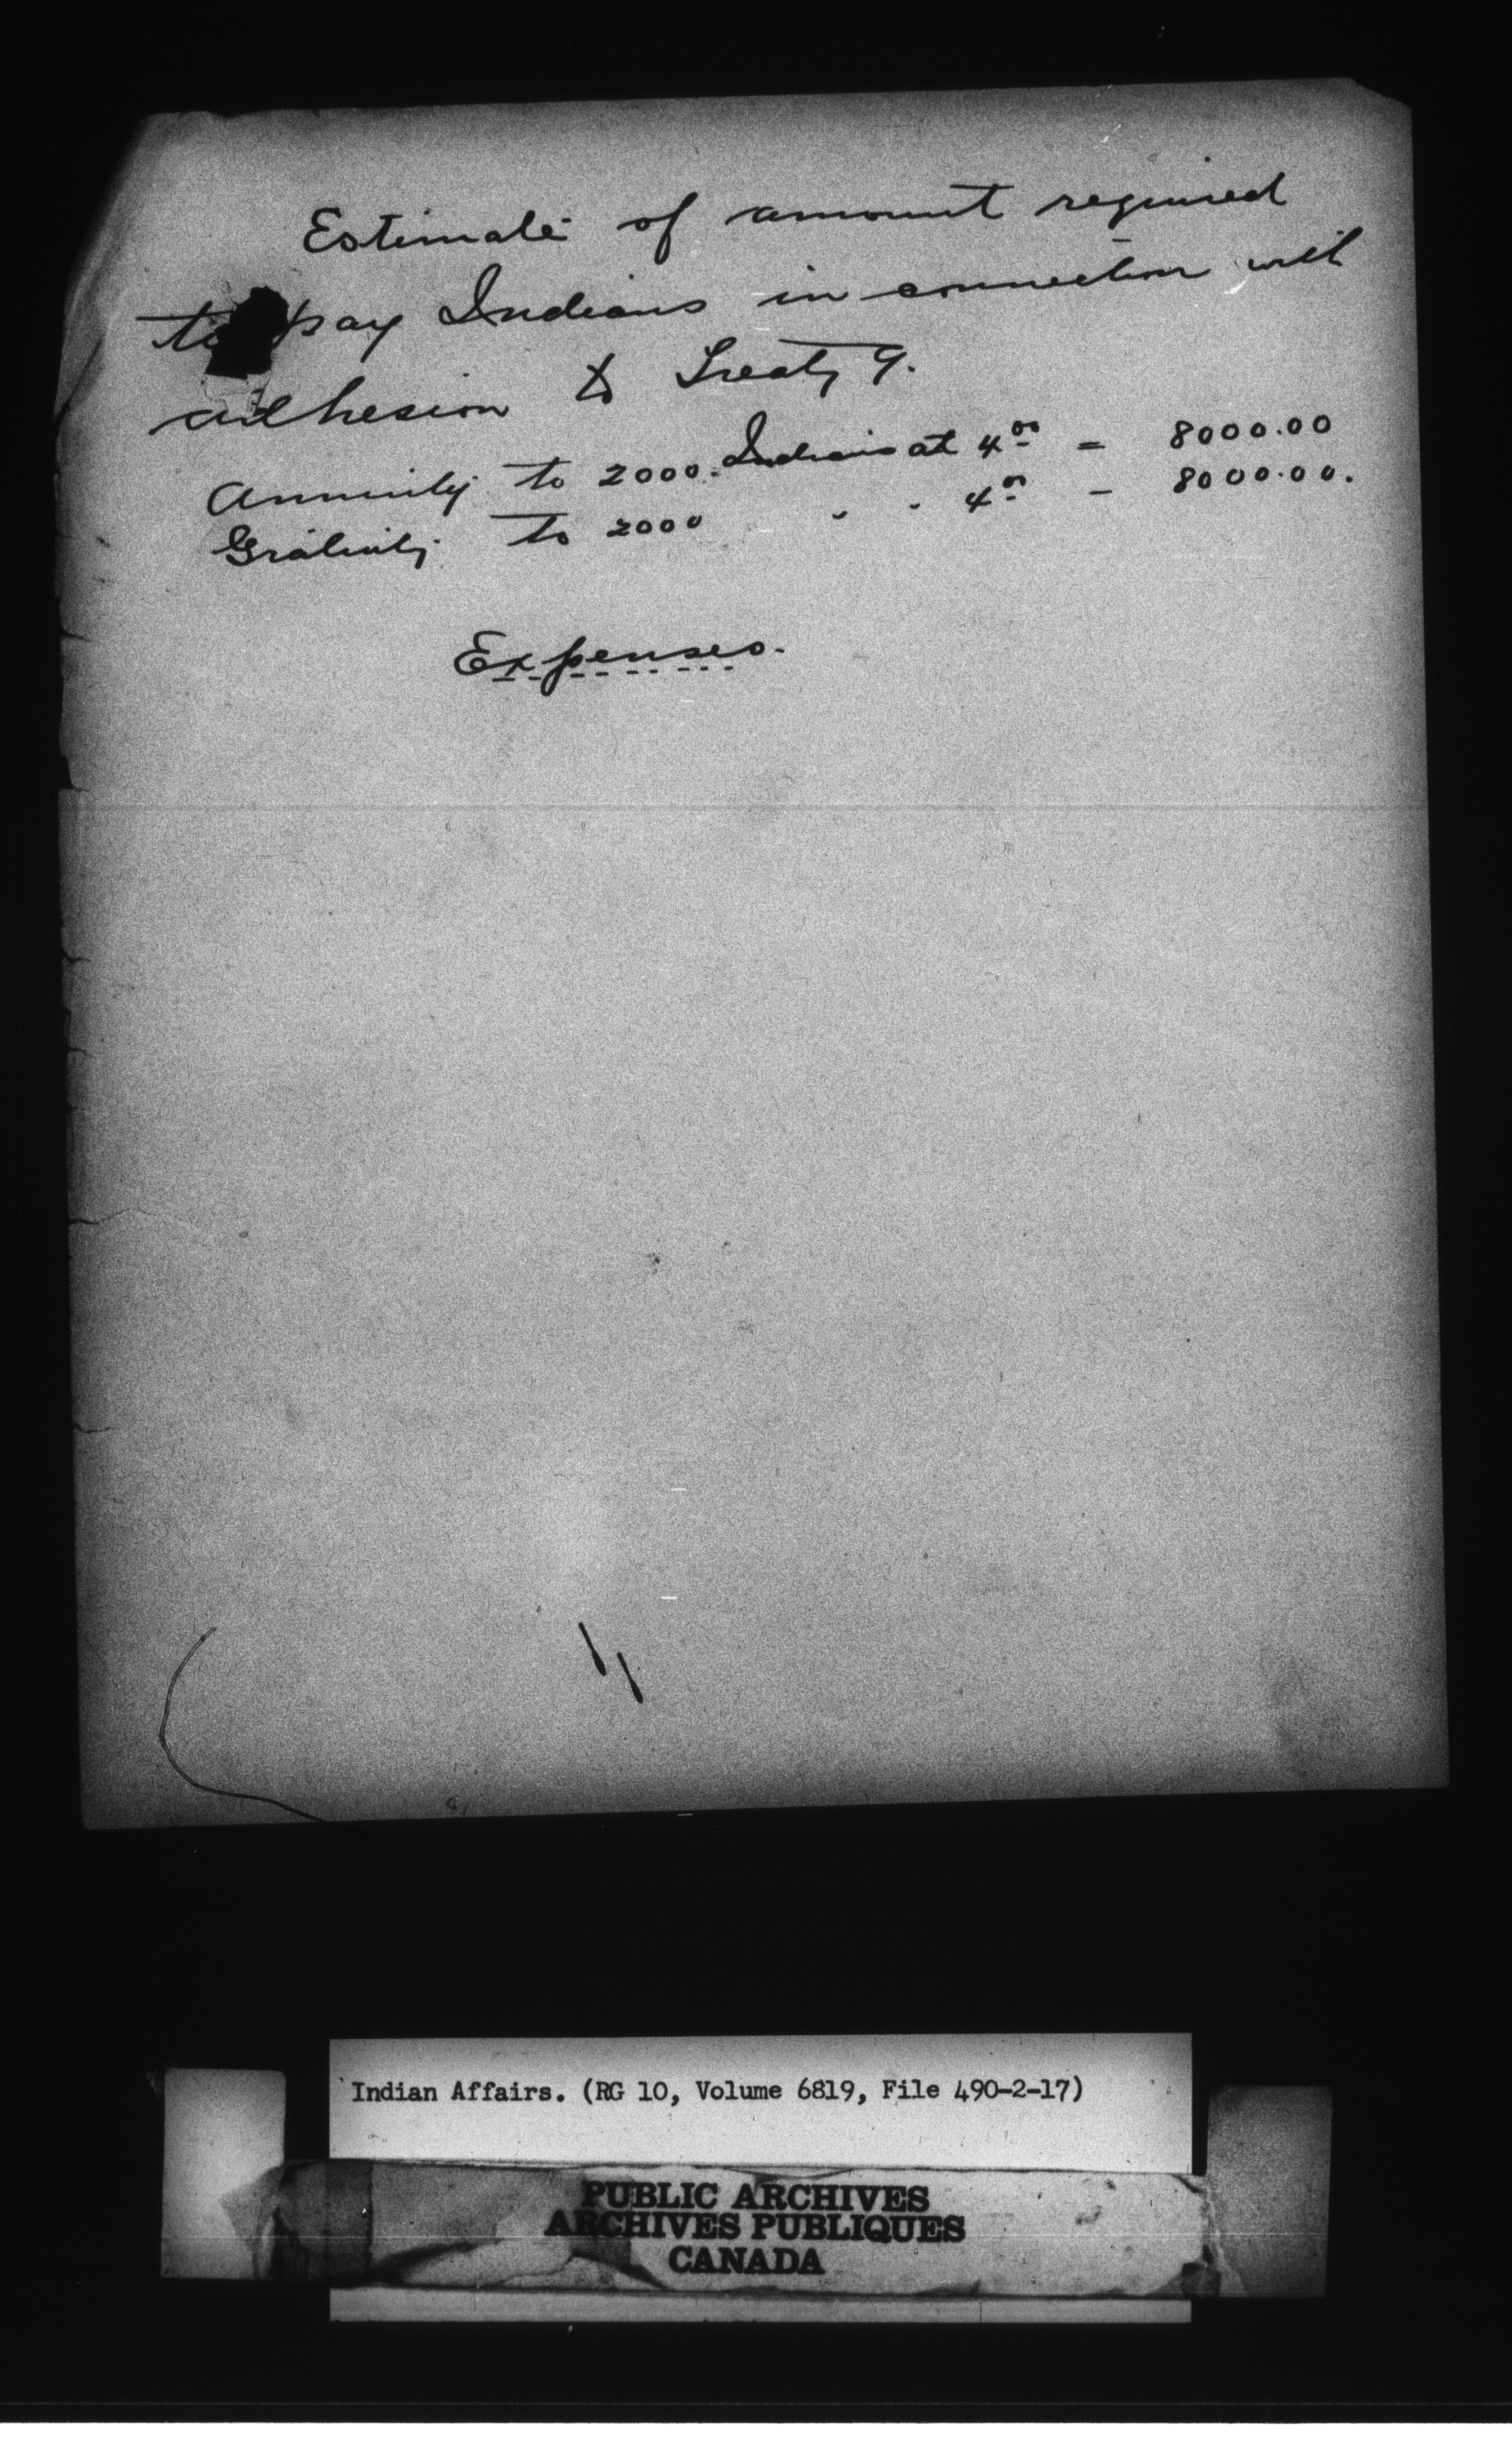 Estimate of amount required
to pay Indians in connection with
adhesion to Treaty 9.
Annuity to 2000 Indians at 4.00 = 8000.00
Gratuity to 2000 " " 4.00 - 8000.00.
Expenses.
Indian Affairs. (RG 10, Volume 6819, File 490-2-17)
PUBLIC ARCHIVES
ARCHIVES PUBLIQUES
CANADA